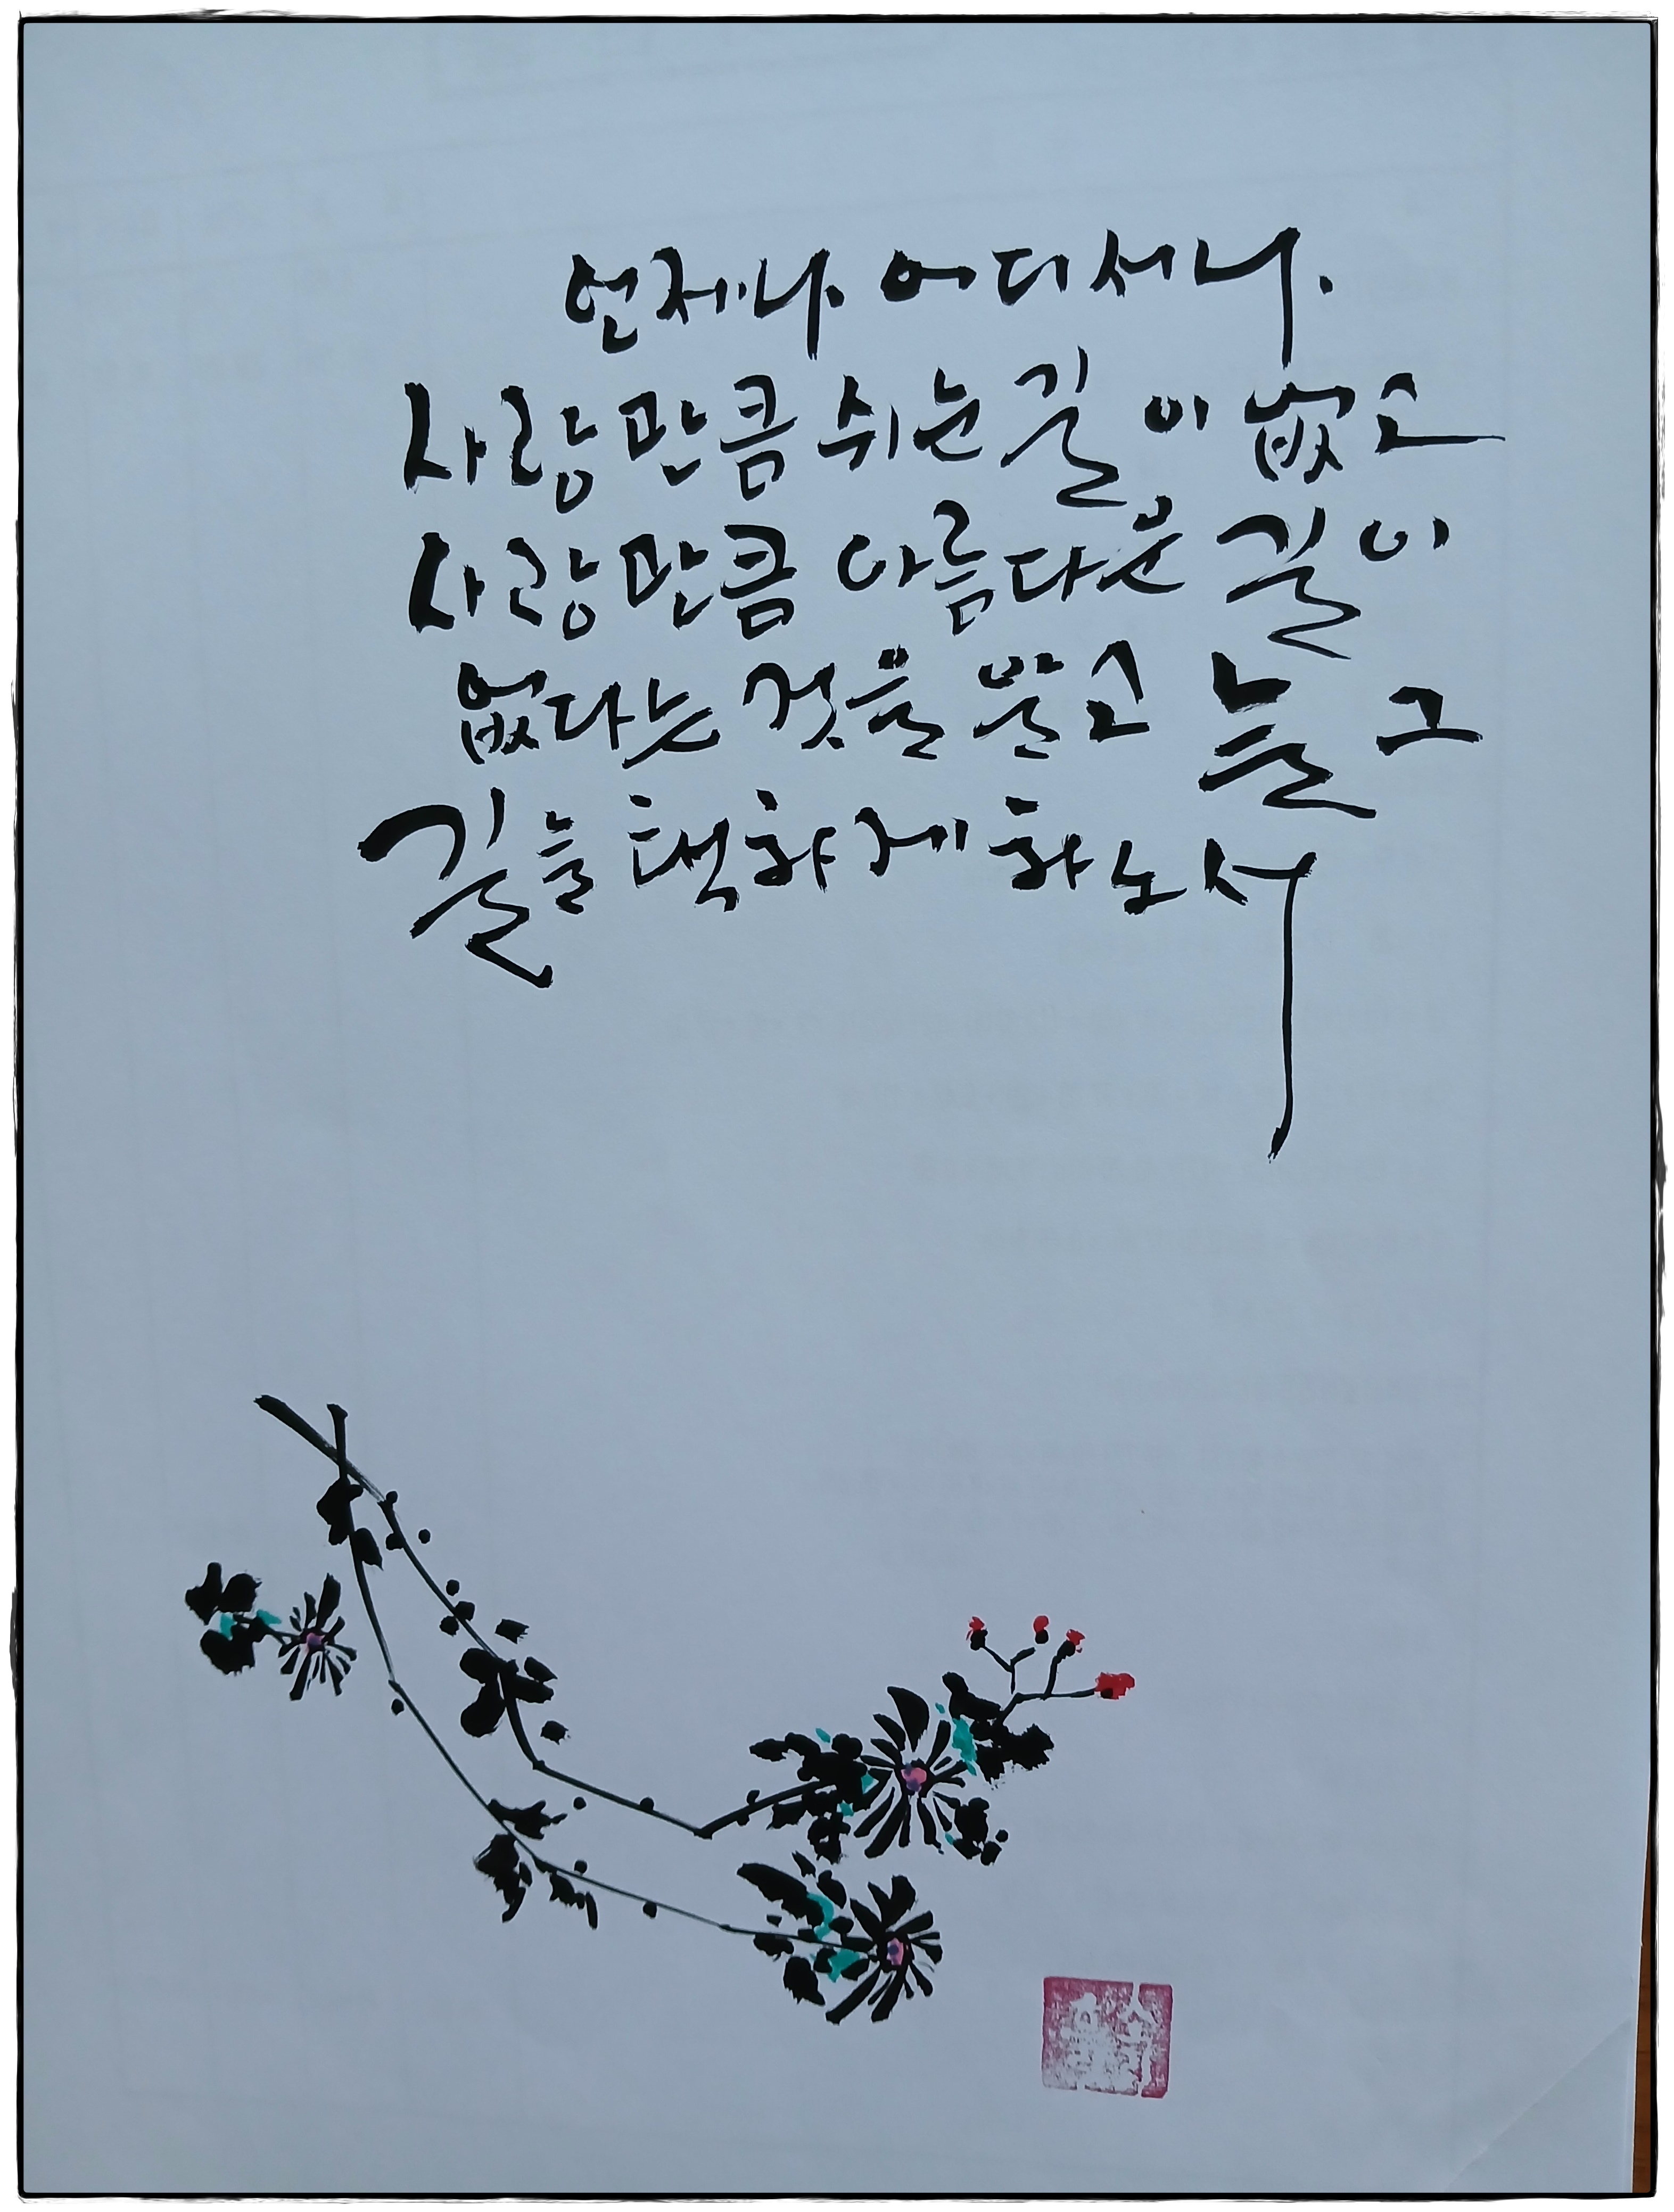 언제나. 어디서나.
사랑만큼 쉬는 길이 없고
사랑만큼 아름다운 길이
없다는 것을 알고 늘 그
길을 택하게 하노서